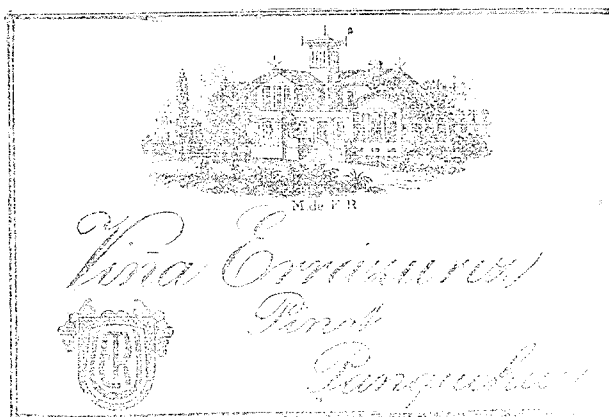 M de E R
Viña Errázuriz
Pinot
Panquehue